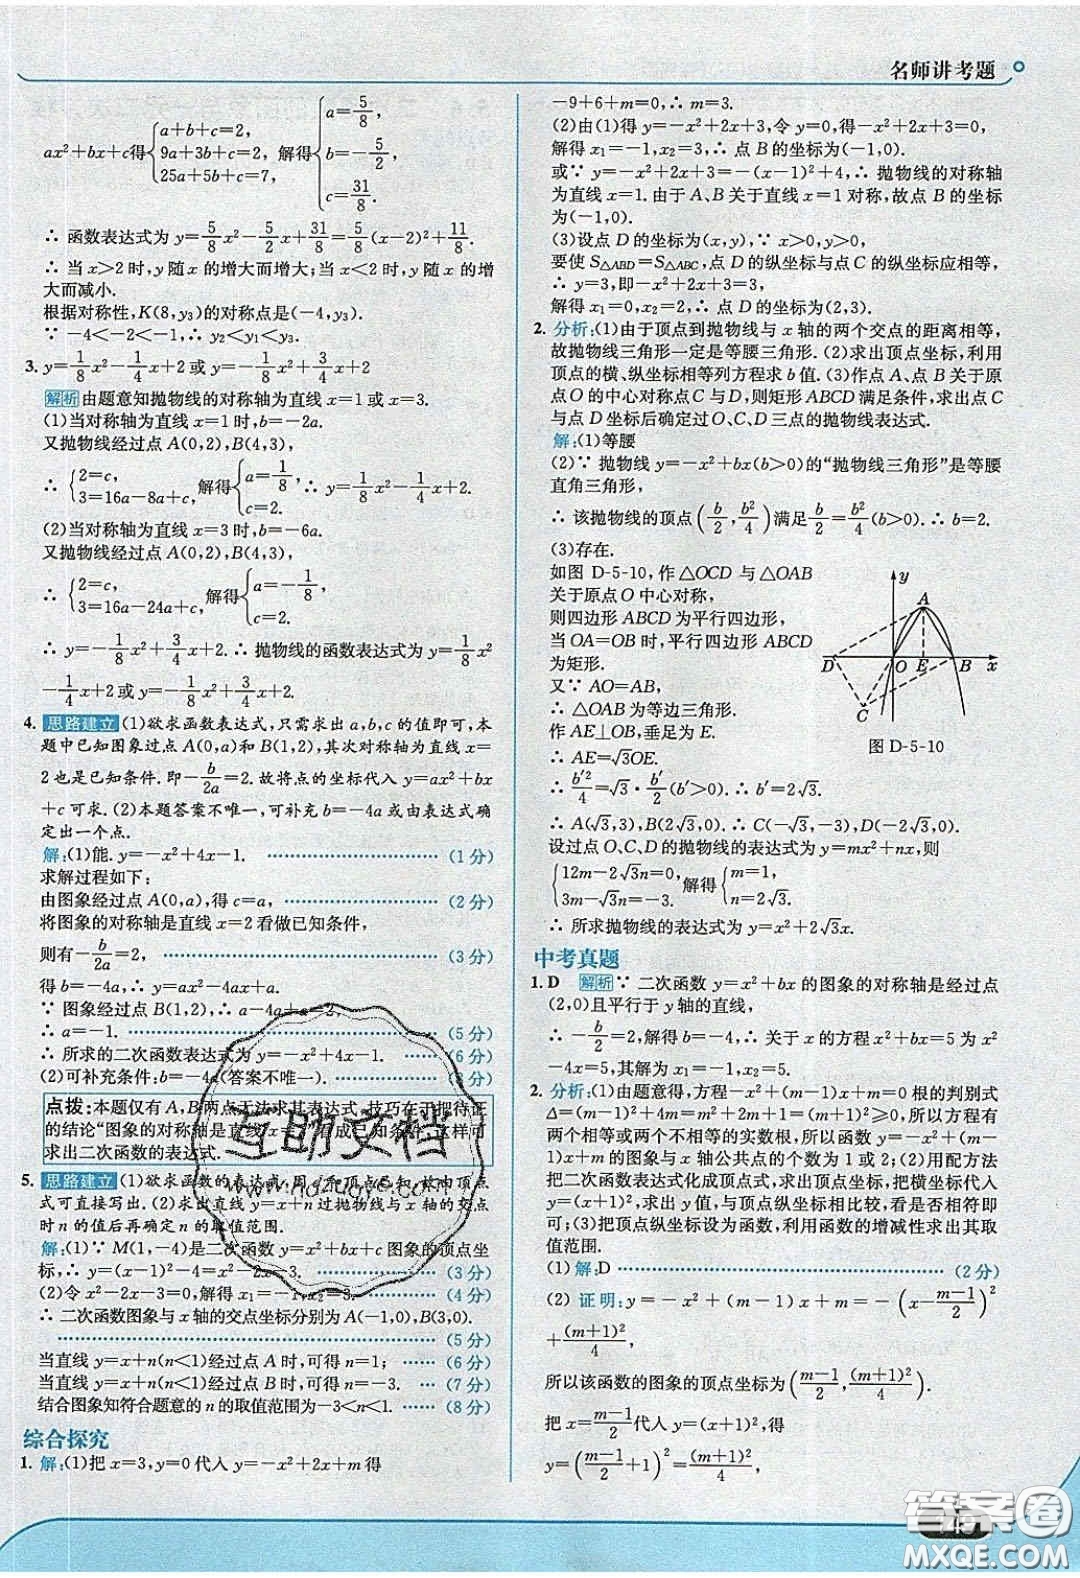 名师讲考题
ax²+bx+c得{a+b+c=2, 9a+3b+c=2, 25a+5b+c=7, 解得{a=5/8, b=-5/2, c=31/8.
∴ 函数表达式为 y=5/8x²-5/2x+31/8=5/8(x-2)²+11/8.
∴ 当 x>2 时,y 随 x 的增大而增大;当 x<2 时,y 随 x 的增
大而减小.
根据对称性,K(8,y₃)的对称点是(-4,y₃).
∵ -4<-2<-1,∴ y₂<y₁<y₃.
3. y=1/8x²-1/4x+2 或 y=-1/8x²+3/4x+2
解析 由题意知抛物线的对称轴为直线 x=1 或 x=3.
(1)当对称轴为直线 x=1 时,b=-2a.
又抛物线经过点 A(0,2),B(4,3),
∴ {2=c, 3=16a-8a+c, 解得{a=1/8, c=2. ∴ y=1/8x²-1/4x+2.
(2)当对称轴为直线 x=3 时,b=-6a.
又抛物线经过点 A(0,2),B(4,3),
∴ {2=c, 3=16a-24a+c, 解得{a=-1/8, c=2.
∴ y=-1/8x²+3/4x+2.∴ 抛物线的函数表达式为 y=1/8x²
-1/4x+2 或 y=-1/8x²+3/4x+2.
4. 思路建立 (1)欲求函数表达式,只需求出 a,b,c 的值即可,本
题中已知图象过点 A(0,a)和 B(1,2),其次对称轴为直线 x=
2 也是已知条件.即-b/2a=2.故将点的坐标代入 y=ax²+bx
+c 可求.(2)本题答案不唯一,可补充 b=-4a 或由表达式确
定出一个点.
解:(1)能. y=-x²+4x-1. ……………………(1 分)
求解过程如下:
由图象经过点 A(0,a),得 c=a, ……………………(2 分)
将图象的对称轴是直线 x=2 看做已知条件,
则有-b/2a=2, ……………………(3 分)
得 b=-4a,∴ y=ax²-4ax+a.
∵ 图象经过点 B(1,2),∴ a-4a+a=2,
∴ a=-1. ……………………(5 分)
∴ 所求的二次函数表达式为 y=-x²+4x-1. ……(6 分)
(2)可补充条件:b=-4a(答案不唯一). ……(8 分)
点拨:本题仅有 A,B 两点无法求其表达式,技巧在于把待证
的结论“图象的对称轴是直线 x=2”看成已知条件,这样可
求出二次函数的表达式.
5. 思路建立 (1)欲求函数的表达式,因为顶点已知,故由顶点
式可直接写出.(2)求出直线 y=x+n 过抛物线与 x 轴的交点
时 n 的值后再确定 n 的取值范围.
解:(1)∵ M(1,-4)是二次函数 y=x²+bx+c 图象的顶点坐
标,∴ y=(x-1)²-4=x²-2x-3. ……(3 分)
(2)令 x²-2x-3=0,解得 x₁=-1,x₂=3. ……(4 分)
∴ 二次函数图象与 x 轴的交点坐标分别为 A(-1,0),B(3,0).
……………………(5 分)
当直线 y=x+n(n<1)经过点 A 时,可得 n=1; ……(6 分)
当直线 y=x+n(n<1)经过点 B 时,可得 n=-3. …(7 分)
结合图象知符合题意的 n 的取值范围为-3<n<1. …(8 分)
综合探究
1. 解:(1)把 x=3,y=0 代入 y=-x²+2x+m 得
-9+6+m=0,∴ m=3.
(2)由(1)得 y=-x²+2x+3,令 y=-x²+2x+3=0,
解得 x₁=-1,x₂=3.∴ 点 B 的坐标为(-1,0).
或∵ y=-x²+2x+3=-(x-1)²+4,∴ 抛物线的对称轴
为直线 x=1.由于 A、B 关于直线 x=1 对称,故点 B 的坐标
为(-1,0).
(3)设点 D 的坐标为(x,y),∵ x>0,y>0,
要使 S△ABD=S△ABC,点 D 的纵坐标与点 C 的纵坐标应相等,
∴ y=3,即-x²+2x+3=3,
解得 x₁=0,x₂=2,∴ 点 D 的坐标为(2,3).
2. 分析:(1)由于顶点到抛物线与 x 轴的两个交点的距离相等,
故抛物线三角形一定是等腰三角形.(2)求出顶点坐标,利用
顶点的横、纵坐标相等列方程求 b 值.(3)作点 A、B 关于原
点 O 的中心对称点 C 与 D,则矩形 ABCD 满足条件,求出点 C
与 D 坐标后确定过 O、C、D 三点的抛物线表达式.
解:(1)等腰
(2)∵ 抛物线 y=-x²+bx(b>0)的“抛物线三角形”是等腰
直角三角形,
∴ 该抛物线的顶点(b/2,b²/4)满足b/2=b²/4(b>0).∴ b=2.
(3)存在.
如图 D-5-10,作△OCD 与△OAB
关于原点 O 中心对称,
则四边形 ABCD 为平行四边形,
当 OA=OB 时,平行四边形 ABCD
为矩形.
又∵ AO=AB,
∴ △OAB 为等边三角形.
作 AE⊥OB,垂足为 E.
∴ AE=√3OE.
∴ b′²/4=√3·b′/2(b′>0).∴ b′=2√3.
y
A
D
O
E
B
x
C
图 D-5-10
∴ A(√3,3),B(2√3,0).∴ C(-√3,-3),D(-2√3,0).
设过点 O、C、D 的抛物线的表达式为 y=mx²+nx,则
{12m-2√3n=0, 3m-√3n=-3. 解得{m=1, n=2√3.
∴ 所求抛物线的表达式为 y=x²+2√3x.
中考真题
1. D 解析 ∵ 二次函数 y=x²+bx 的图象的对称轴是经过点
(2,0)且平行于 y 轴的直线,
∴ -b/2=2,解得 b=-4,∴ 关于 x 的方程 x²+bx=5 为 x²
-4x=5,其解为 x₁=-1,x₂=5.
2. 分析:(1)由题意得,方程-x²+(m-1)x+m=0 根的判别式
Δ=(m-1)²+4m=m²+2m+1=(m+1)²≥0,所以方程有
两个相等或两个不相等的实数根,所以函数 y=-x²+(m-
1)x+m 的图象与 x 轴公共点的个数为 1 或 2;(2)用配方法
把二次函数表达式化成顶点式,求出顶点坐标,把横坐标代入
y=(x+1)²,求出 y 值,与顶点纵坐标相比较,看是否符合即
可;(3)把顶点纵坐标设为函数,利用函数的增减性求出其取
值范围.
(1)解:D ……………………(2 分)
(2) 证明:y=-x²+(m-1)x+m=-(x-(m-1)/2)²
+(m+1)²/4,
所以该函数的图象的顶点坐标为((m-1)/2,(m+1)²/4).
把 x=(m-1)/2代入 y=(x+1)²,得
y=((m-1)/2+1)²=(m+1)²/4,
互助文档
www.hdzuoye.com
答案圈
MXQE.COM